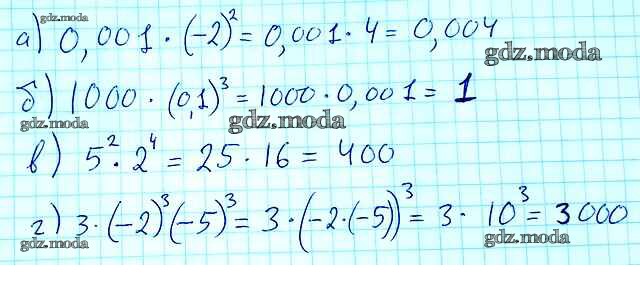 gdz.moda
а) 0,001 · (-2)² = 0,001 · 4 = 0,004
gdz.moda
б) 1000 · (0,1)³ = 1000 · 0,001 = 1
gdz.moda gdz.moda
в) 5² · 2⁴ = 25 · 16 = 400
г) 3 · (-2)³(-5)³ = 3 · (-2·(-5))³ = 3 · 10³ = 3000
gdz.moda gdz.moda